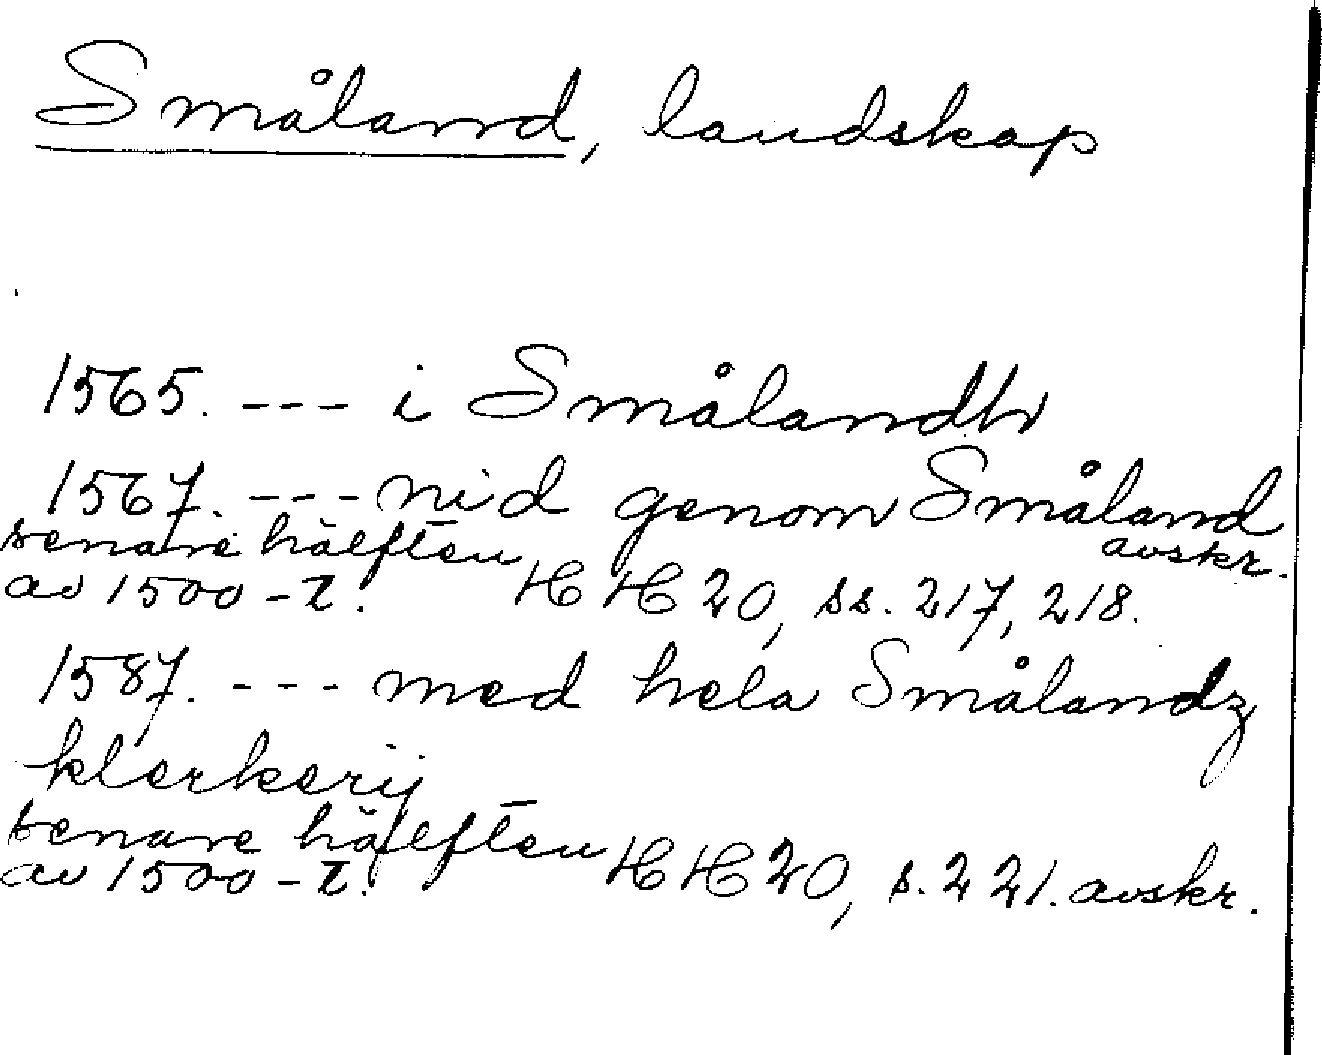 Småland, landskap
1565. --- i Smålandh
1567. --- nid genom Småland
senare hälften avskr.
av 1500-t. HH 20, ss. 217, 218.
1587. --- med hela Smålandz
klerkerij
senare hälften
av 1500-t. HH 20, s. 221. avskr.